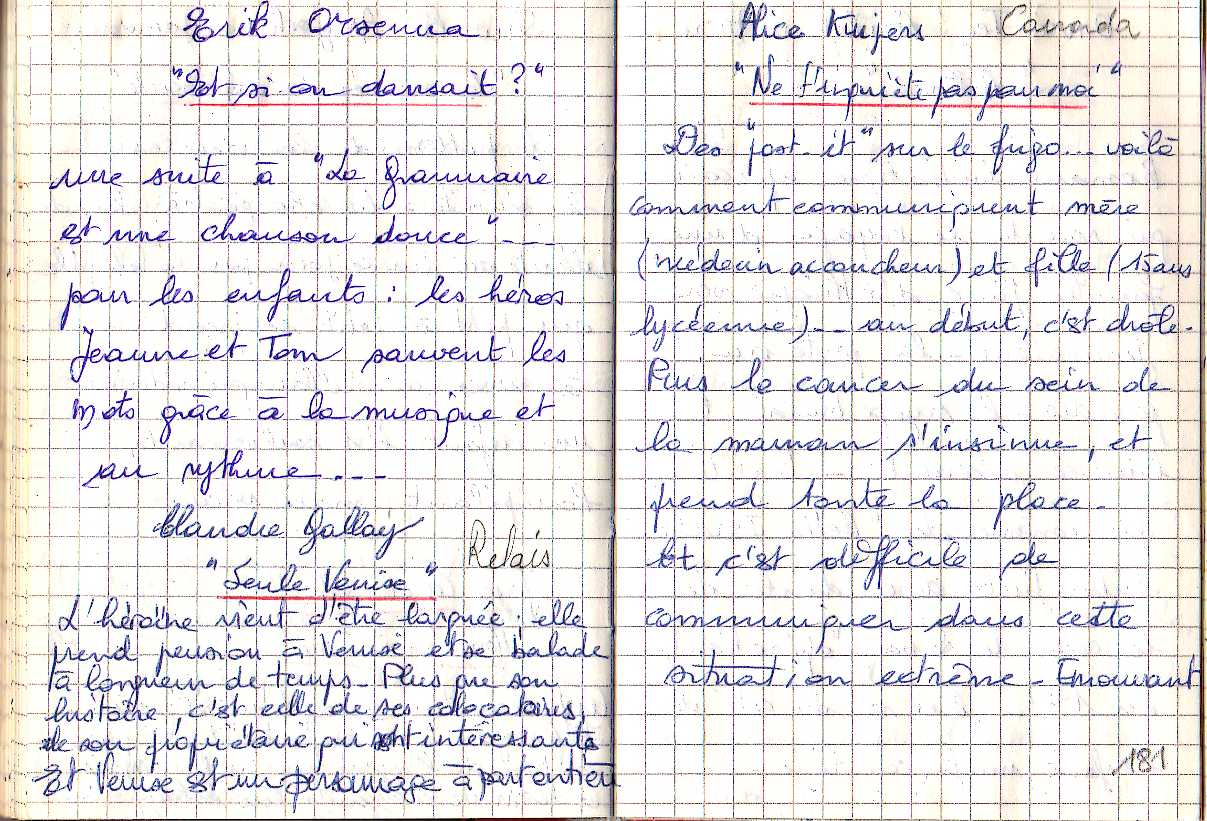 Erik Orsenna
"Et si on dansait ?"
une suite à "La grammaire
est une chanson douce"---
pour les enfants : les héros
Jeanne et Tom sauvent les
mots grâce à la musique et
au rythme---
Claudie Gallay
Relais
"Seule Venise"
L'héroïne vient d'être larguée : elle
prend pension à Venise et se balade
à longueur de temps - Plus que son
histoire, c'est celle de ses colocataires,
de son propriétaire qui sont intéressants
Et Venise est un personnage à part entière
Alice Kuipers Canada
"Ne t'inquiète pas pour moi"
Des "post-it" sur le frigo... voilà
comment communiquent mère
(médecin accoucheur) et fille (15 ans
lycéenne)-- au début, c'est drôle.
Puis le cancer du sein de
la maman s'insinue, et
prend toute la place.
Et c'est difficile de
communiquer dans cette
situation extrême - Emouvant
181